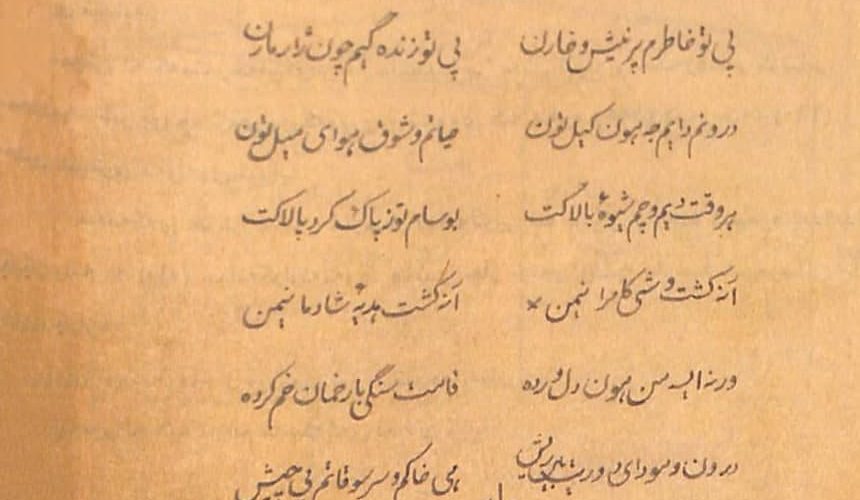 پی تو خاطرم پر نیش و خارن پی تو زنده گیم چون ژار مارن
درونم دایم جه هون کیل تون حیاتم و شوق هوای میل تون
هر وقت دیم و چم شیوهٔ بالاکت بوسام توز پاک کرد پالاکت
آنه گشت و شی کامرا نیمن × آنه گشت هدیه شادمانیمن
ورنه ایسه من هون دل ورده قامت سنگی بار خمان خم کرده
درون و سودای دوریت خاکم و سر سوقاتم بی